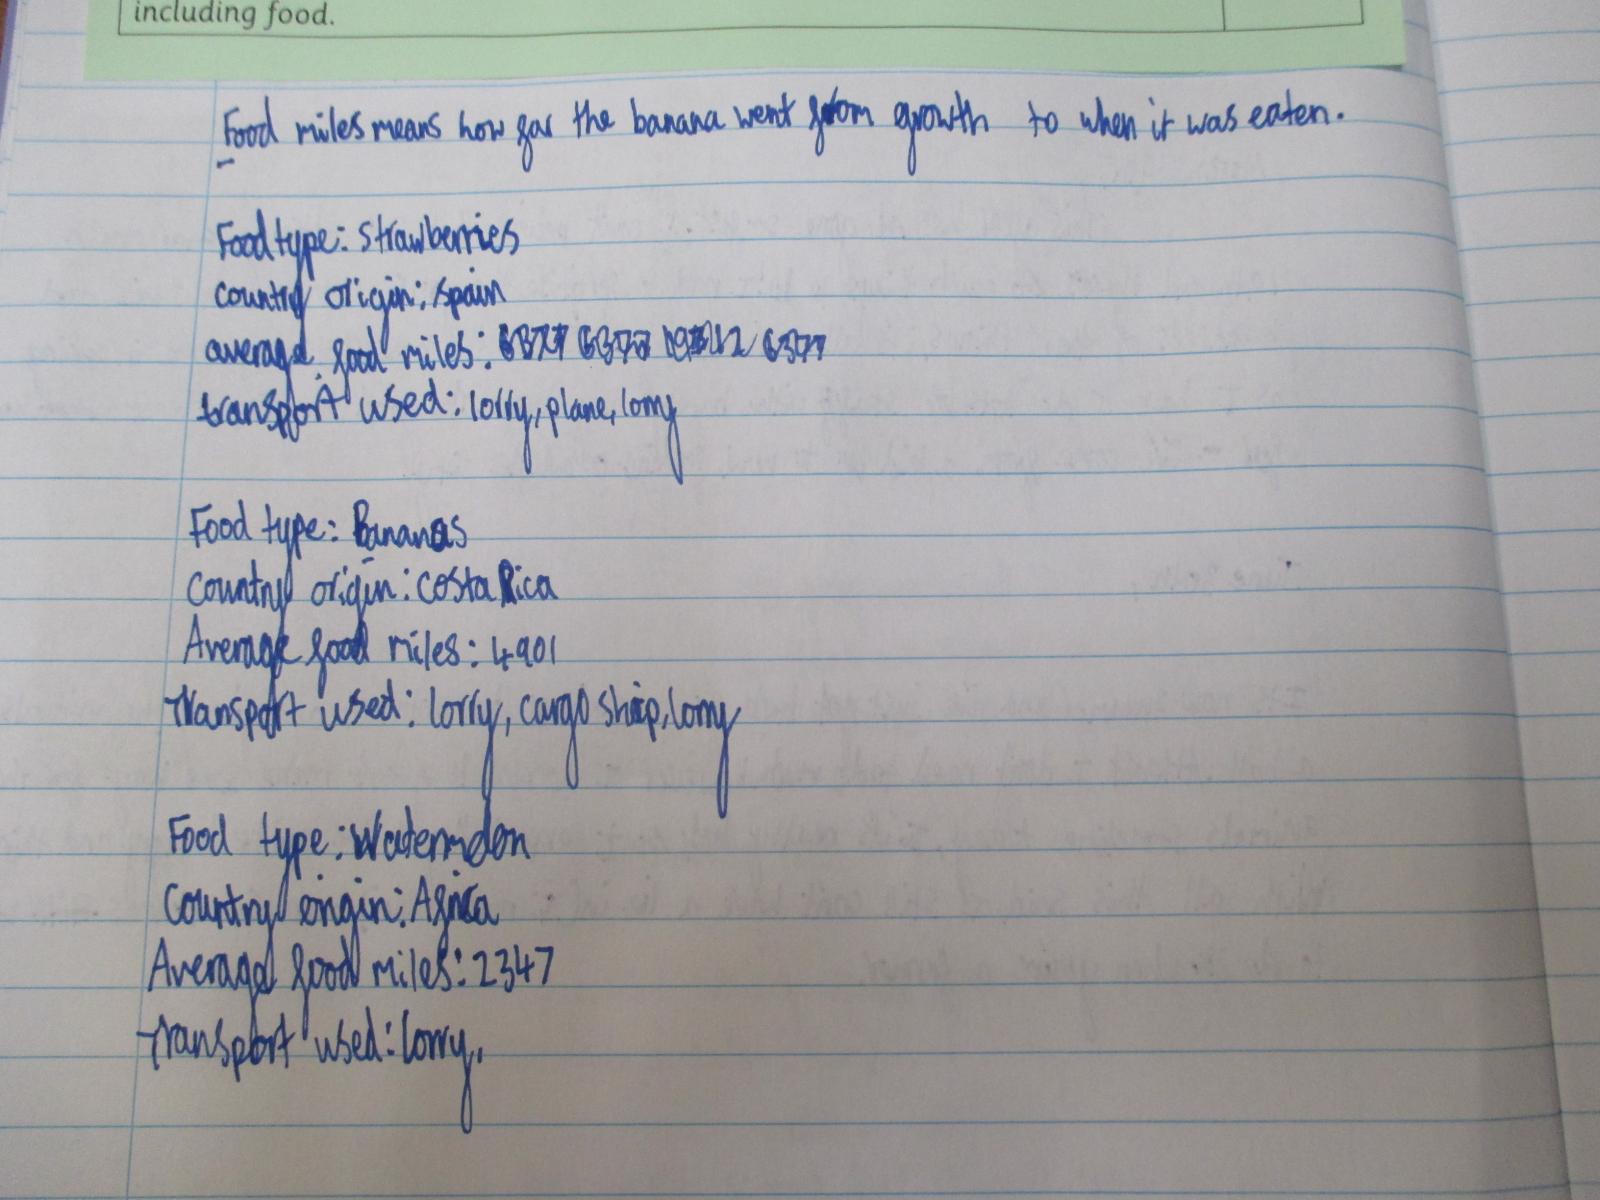 including food.
Food miles means how far the banana went from growth to when it was eaten.
Food type: strawberries
country origin: spain
average food miles: 6377
transport used: lorry, plane, lorry
Food type: Bananas
Country origin: costa Rica
Average food miles: 4901
Transport used: lorry, cargo ship, lorry
Food type: Watermelon
Country origin: Africa
Average food miles: 2347
Transport used: lorry,